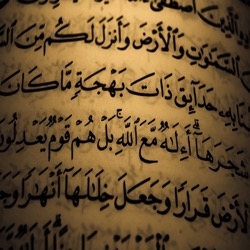 ٱلَّذِينَ ٱصْطَفَىٰٓ
ٱلسَّمَٰوَٰتِ وَٱلْأَرْضَ وَأَنزَلَ لَكُم مِّنَ
بِهِۦ حَدَآئِقَ ذَاتَ بَهْجَةٍ مَّا كَانَ
شَجَرَهَآ ۗ أَءِلَٰهٌ مَّعَ ٱللَّهِ ۚ بَلْ هُمْ قَوْمٌ يَعْدِلُونَ
ٱلْأَرْضَ قَرَارًا وَجَعَلَ خِلَٰلَهَآ أَنْهَٰرًا وَجَعَلَ